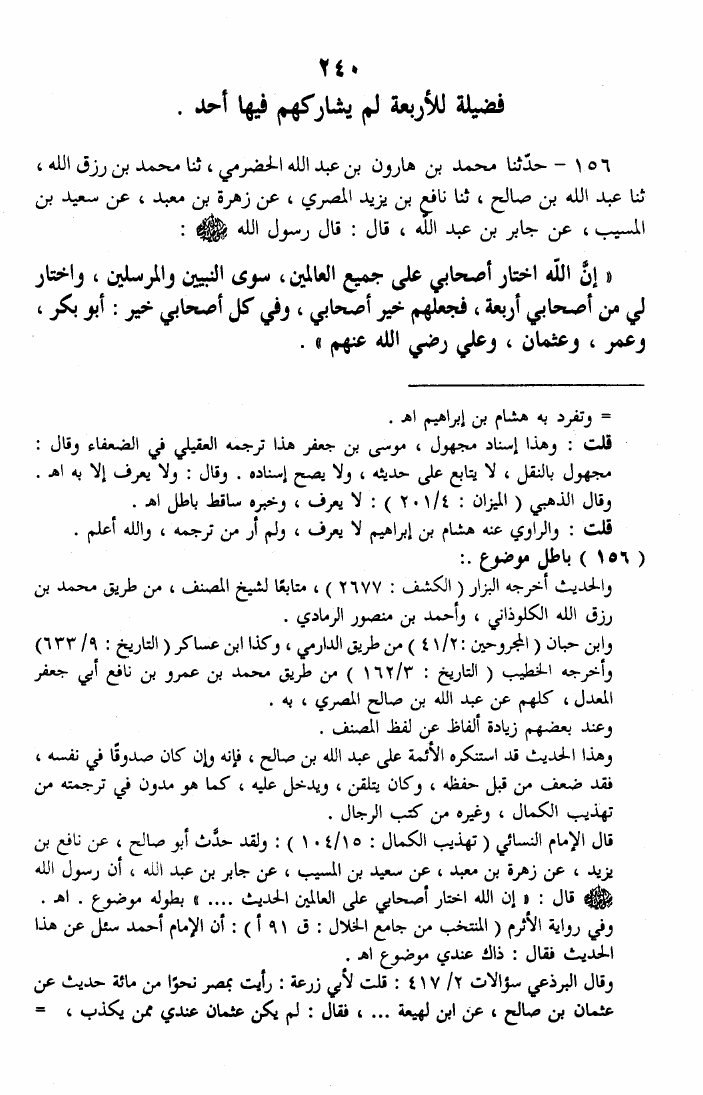 ٢٤٠
فضيلة للأربعة لم يشاركهم فيها أحد .
١٥٦ – حدّثنا محمد بن هارون بن عبد الله الحضرمي ، ثنا محمد بن رزق الله ،
ثنا عبد الله بن صالح ، ثنا نافع بن يزيد المصري ، عن زهرة بن معبد ، عن سعيد بن
المسيب ، عن جابر بن عبد الله ، قال : قال رسول الله ﷺ :
« إنَّ الله اختار أصحابي على جميع العالمين، سوى النبيين والمرسلين ، واختار
لي من أصحابي أربعة، فجعلهم خير أصحابي ، وفي كل أصحابي خير : أبو بكر ،
وعمر ، وعثمان ، وعلي رضي الله عنهم » .
= وتفرد به هشام بن إبراهيم اهـ .
قلت : وهذا إسناد مجهول ، موسى بن جعفر هذا ترجمه العقيلي في الضعفاء وقال :
مجهول بالنقل ، لا يتابع على حديثه ، ولا يصح إسناده . وقال : ولا يعرف إلا به اهـ .
وقال الذهبي ( الميزان : ٢٠١/٤ ) : لا يعرف ، وخبره ساقط باطل اهـ .
قلت : والراوي عنه هشام بن إبراهيم لا يعرف ، ولم أر من ترجمه ، والله أعلم .
( ١٥٦ ) باطل موضوع .:
والحديث أخرجه البزار ( الكشف : ٢٦٧٧ ) ، متابعًا لشيخ المصنف ، من طريق محمد بن
رزق الله الكلوذاني ، وأحمد بن منصور الرمادي .
وابن حبان ( المجروحين : ٤١/٢ ) من طريق الدارمي ، وكذا ابن عساكر ( التاريخ : ٦٣٣/٩)
وأخرجه الخطيب ( التاريخ : ١٦٢/٣ ) من طريق محمد بن عمرو بن نافع أبي جعفر
المعدل ، كلهم عن عبد الله بن صالح المصري ، به .
وعند بعضهم زيادة ألفاظ عن لفظ المصنف .
وهذا الحديث قد استنكره الأئمة على عبد الله بن صالح ، فإنه وإن كان صدوقًا في نفسه ،
فقد ضعف من قبل حفظه ، وكان يتلقن ، ويدخل عليه ، كما هو مدون في ترجمته من
تهذيب الكمال ، وغيره من كتب الرجال .
قال الإمام النسائي ( تهذيب الكمال : ١٠٤/١٥ ) : ولقد حدَّث أبو صالح ، عن نافع بن
يزيد ، عن زهرة بن معبد ، عن سعيد بن المسيب ، عن جابر بن عبد الله ، أن رسول الله
ﷺ قال : « إن الله اختار أصحابي على العالمين الحديث .... » بطوله موضوع . اهـ .
وفي رواية الأثرم ( المنتخب من جامع الخلال : ق ٩١ أ ) : أن الإمام أحمد سئل عن هذا
الحديث فقال : ذاك عندي موضوع اهـ .
وقال البرذعي سؤالات ٢/ ٤١٧ : قلت لأبي زرعة : رأيت بمصر نحوًا من مائة حديث عن
عثمان بن صالح ، عن ابن لهيعة ... ، فقال : لم يكن عثمان عندي ممن يكذب ، =